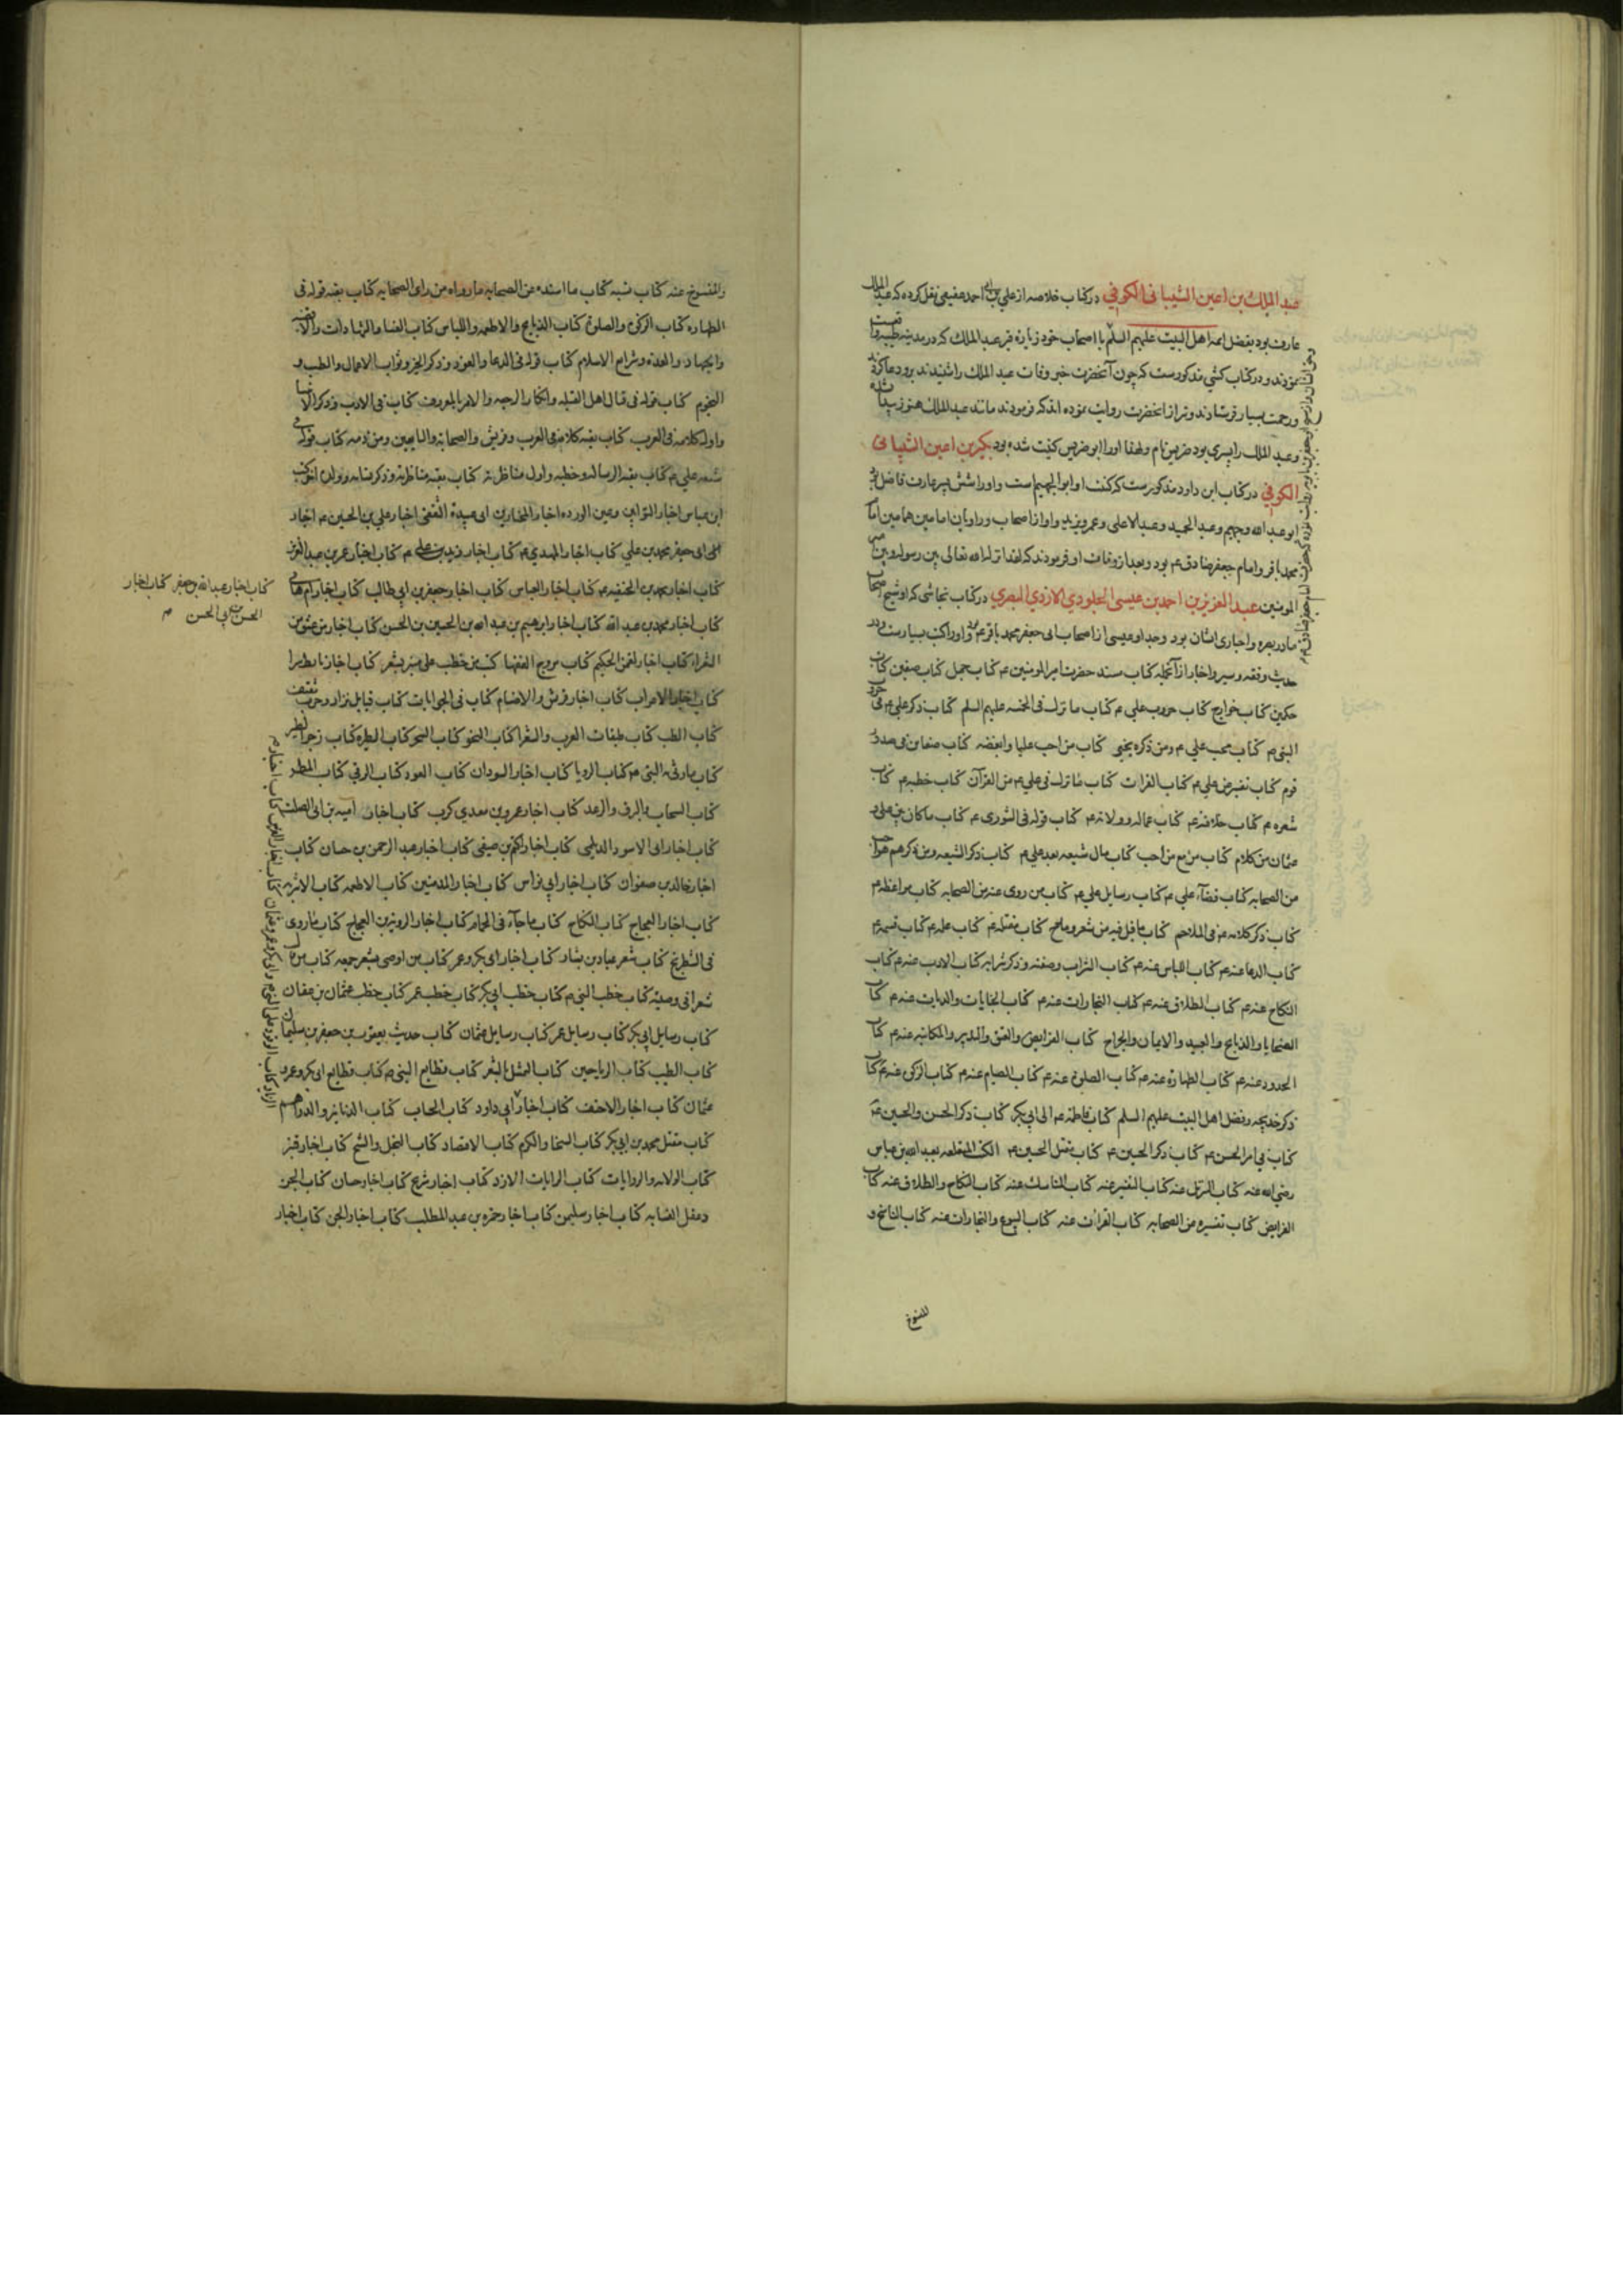 عبد الملك بن اعین الشیبانی الکوفی در کتاب خلاصه از علی بن احمد عقیقی نقل کرده که عبد الملك
عارف بود بفضل ائمه اهل البیت علیهم السلم با اصحاب خود زیارة قبر عبد الملك که در مدینه طیبه واقعست
نمودند و در کتاب کشی مذکورست که چون آنحضرت خبر وفات عبد الملك را شنیدند برو دعا کردند
ورحمت بسیار فرستادند و نیز از آنحضرت روایت نموده اند که فرمودند مانند عبد الملك هنوز
وعبد الملك را پسری بود ضریس نام ولهذا او را ابو ضریس کنیت شده بود بکیر بن اعین الشیبانی
الکوفی در کتاب ابن داود مذکورست که کنیت او ابو الجهم است و او را شش پسر عارف فاضل بود
ابو عبد الله وجهم وعبد الحمید وعبد الاعلی وعمرو وزید و او از اصحاب و راویان امامین همامین امام
محمد باقر وامام جعفر صادق عم بود وبعد از وفات او فرمودند که لقد انزله الله تعالی بین رسوله وبین امیر
المومنین عبد العزیز بن احمد بن عیسی الجلودی الازدی البصری در کتاب نجاشی که او شیخ اصحاب
ما در بصره و اخباری ایشان بود وجد او عیسی از اصحاب ابی جعفر محمد باقر عم بود و او را کتب بسیارست در
حدیث وفقه وسیر واخبار از آنجمله کتاب مسند حضرت امیر المومنین عم کتاب جمل کتاب صفین کتاب
حکمین کتاب خوارج کتاب حروب علی عم کتاب ما نزل فی الخمسه علیهم السلم کتاب ذکر علی عم فی حروب
النبی م کتاب محب علی م ومن ذکره بخیر کتاب من احب علیا وابغضه کتاب ضغاین فی صدور
قوم کتاب تفسیر عن علی م کتاب القرات کتاب ما نزل فی علی م من القرآن کتاب خطبه م کتاب
شعره م کتاب خلافته م کتاب عماله وولاته م کتاب قوله فی الشوری م کتاب ما کان بین علی و
عثمان من کلام کتاب مال شیعه بعد علی م کتاب ذکر الشیعه ومن ذکرهم
من الصحابه کتاب قضاء علی م کتاب رسایل علی م کتاب من روی عنه من الصحابه کتاب مواعظه م
کتاب ذکر کلامه عم فی الملاحم کتاب ما قیل فیه من شعر ومدح کتاب مقتله م کتاب علمه م کتاب قسمه م
کتاب الدعا عنه م کتاب اللباس عنه م کتاب الشراب وصفته وذکر شرابه کتاب الادب عنه م کتاب
النکاح عنه م کتاب الطلاق عنه م کتاب التجارات عنه م کتاب الجنایات والدیات عنه م کتاب
الضحایا والذبایح والصید والایمان والجراح کتاب الفرایض والعتق والتدبیر والمکاتبه عنه م کتاب
الحدود عنه م کتاب الطهارة عنه م کتاب الصلوة عنه م کتاب الصیام عنه م کتاب الزکوة عنه م کتاب
ذکر خدیجه وفضل اهل البیت علیهم السلم کتاب فاطمه عم الی ابی بکر کتاب ذکر الحسن والحسین عم
کتاب فی امر الحسن عم کتاب ذکر الحسین م کتاب مقتل الحسین م الکتب المتعلقه بعبد الله بن عباس
رضی الله عنه کتاب التنزیل عنه کتاب التفسیر عنه کتاب المناسك عنه کتاب النکاح والطلاق عنه کتاب
الفرایض کتاب تفسیره عن الصحابه کتاب القرات عنه کتاب البیوع والتجارات عنه کتاب الناسخ و
المنسوخ
والمنسوخ عنه کتاب نسبه کتاب ما اسنده عن الصحابه ما رواه من رای الصحابه کتاب بقیه قوله فی
الطهاره کتاب الزکوة والصلوة کتاب الذبایح والاطعمه واللباس کتاب القضا والشهادات والاقضیه
والجهاد والعدة وشرایع الاسلام کتاب قوله فی الدعا والعوذ وذکر الخیر وثواب الاعمال والطب و
النجوم کتاب قوله فی قتال اهل القبله وانکار الرجعه والامر بالمعروف کتاب فی الادب وذکر الانبیا
واول کلامه فی العرب کتاب بقیه کلامه فی العرب وقریش والصحابه والتابعین ومن ذمه کتاب قوله فی
شیعه علی م کتاب بقیه الرساله وخطبه واول مناظرته کتاب بقیه مناظرته وذکر نسایه وولده آخر کتب
ابن عباس اخبار التوابین وعین الورده اخبار المختار بن ابی عبیدة الثقفی اخبار علی بن الحسین م اخبار
ابی جعفر محمد بن علی کتاب اخبار المهدی م کتاب اخبار زید بن علی م کتاب اخبار عمر بن عبد العزیز
کتاب اخبار محمد بن الحنفیه م کتاب اخبار العباس کتاب اخبار جعفر بن ابی طالب کتاب اخبار ام هانی
کتاب اخبار عبد الله بن جعفر کتاب اخبار
الحسن بن ابی الحسن م
کتاب اخبار محمد بن عبد الله کتاب اخبار ابرهیم بن عبد الله بن الحسین بن الحسن کتاب اخبار من عشق من
الشعراء کتاب اخبار لقمن الحکیم کتاب مروج الفقها کتاب من خطب علی منبر بشعر کتاب اخبار تابط شرا
کتاب اخبار الاعراب کتاب اخبار قریش والاصنام کتاب فی الجوابات کتاب قبایل نزار وحرب ثقیف
کتاب الطب کتاب طبقات العرب والشعرا کتاب النحو کتاب السحر کتاب الطیره کتاب زجر الطیر
کتاب ما رثی به النبی م کتاب الرویا کتاب اخبار السودان کتاب العوذ کتاب الرقی کتاب المطر
کتاب السحاب والبرق والرعد کتاب اخبار عمرو بن معدی کرب کتاب اخبار امیه بن ابی الصلت
کتاب اخبار ابی الاسود الدئلی کتاب اخبار اکثم بن صیفی کتاب اخبار عبد الرحمن بن حسان کتاب
اخبار خالد بن صفوان کتاب اخبار ابی نواس کتاب اخبار المذنبین کتاب الاطعمه کتاب الاشربه
کتاب اخبار العجاج کتاب النکاح کتاب ما جاء فی الحمام کتاب اخبار الروبة بن العجاج کتاب ما روی
فی الشطرنج کتاب شعر عباد بن بشار کتاب اخبار ابی بکر وعمر کتاب من اوصی بشعر جمعه کتاب من قال
شعرا فی وصیته کتاب خطب النبی م کتاب خطب ابی بکر کتاب خطب عمر کتاب خطب عثمان بن عفان
کتاب رسایل ابی بکر کتاب رسایل عمر کتاب رسایل عثمان کتاب حدیث یعقوب بن جعفر بن سلیمان
کتاب الطیب کتاب الریاحین کتاب التمثل بالشعر کتاب قطایع النبی م کتاب قطایع ابی بکر وعمر و
عثمان کتاب اخبار الاحنف کتاب اخبار ابی داود کتاب الحساب کتاب الدنانیر والدراهم
کتاب مقتل محمد بن ابی بکر کتاب السخا والکرم کتاب الاقتصاد کتاب البخل والشح کتاب اخبار قنبر
کتاب الالویه والرایات کتاب رایات الازد کتاب اخبار شریح کتاب اخبار حسان کتاب
دغفل النسابه کتاب اخبار سلیمن کتاب اخبار حمزه بن عبد المطلب کتاب اخبار الجن کتاب اخبار